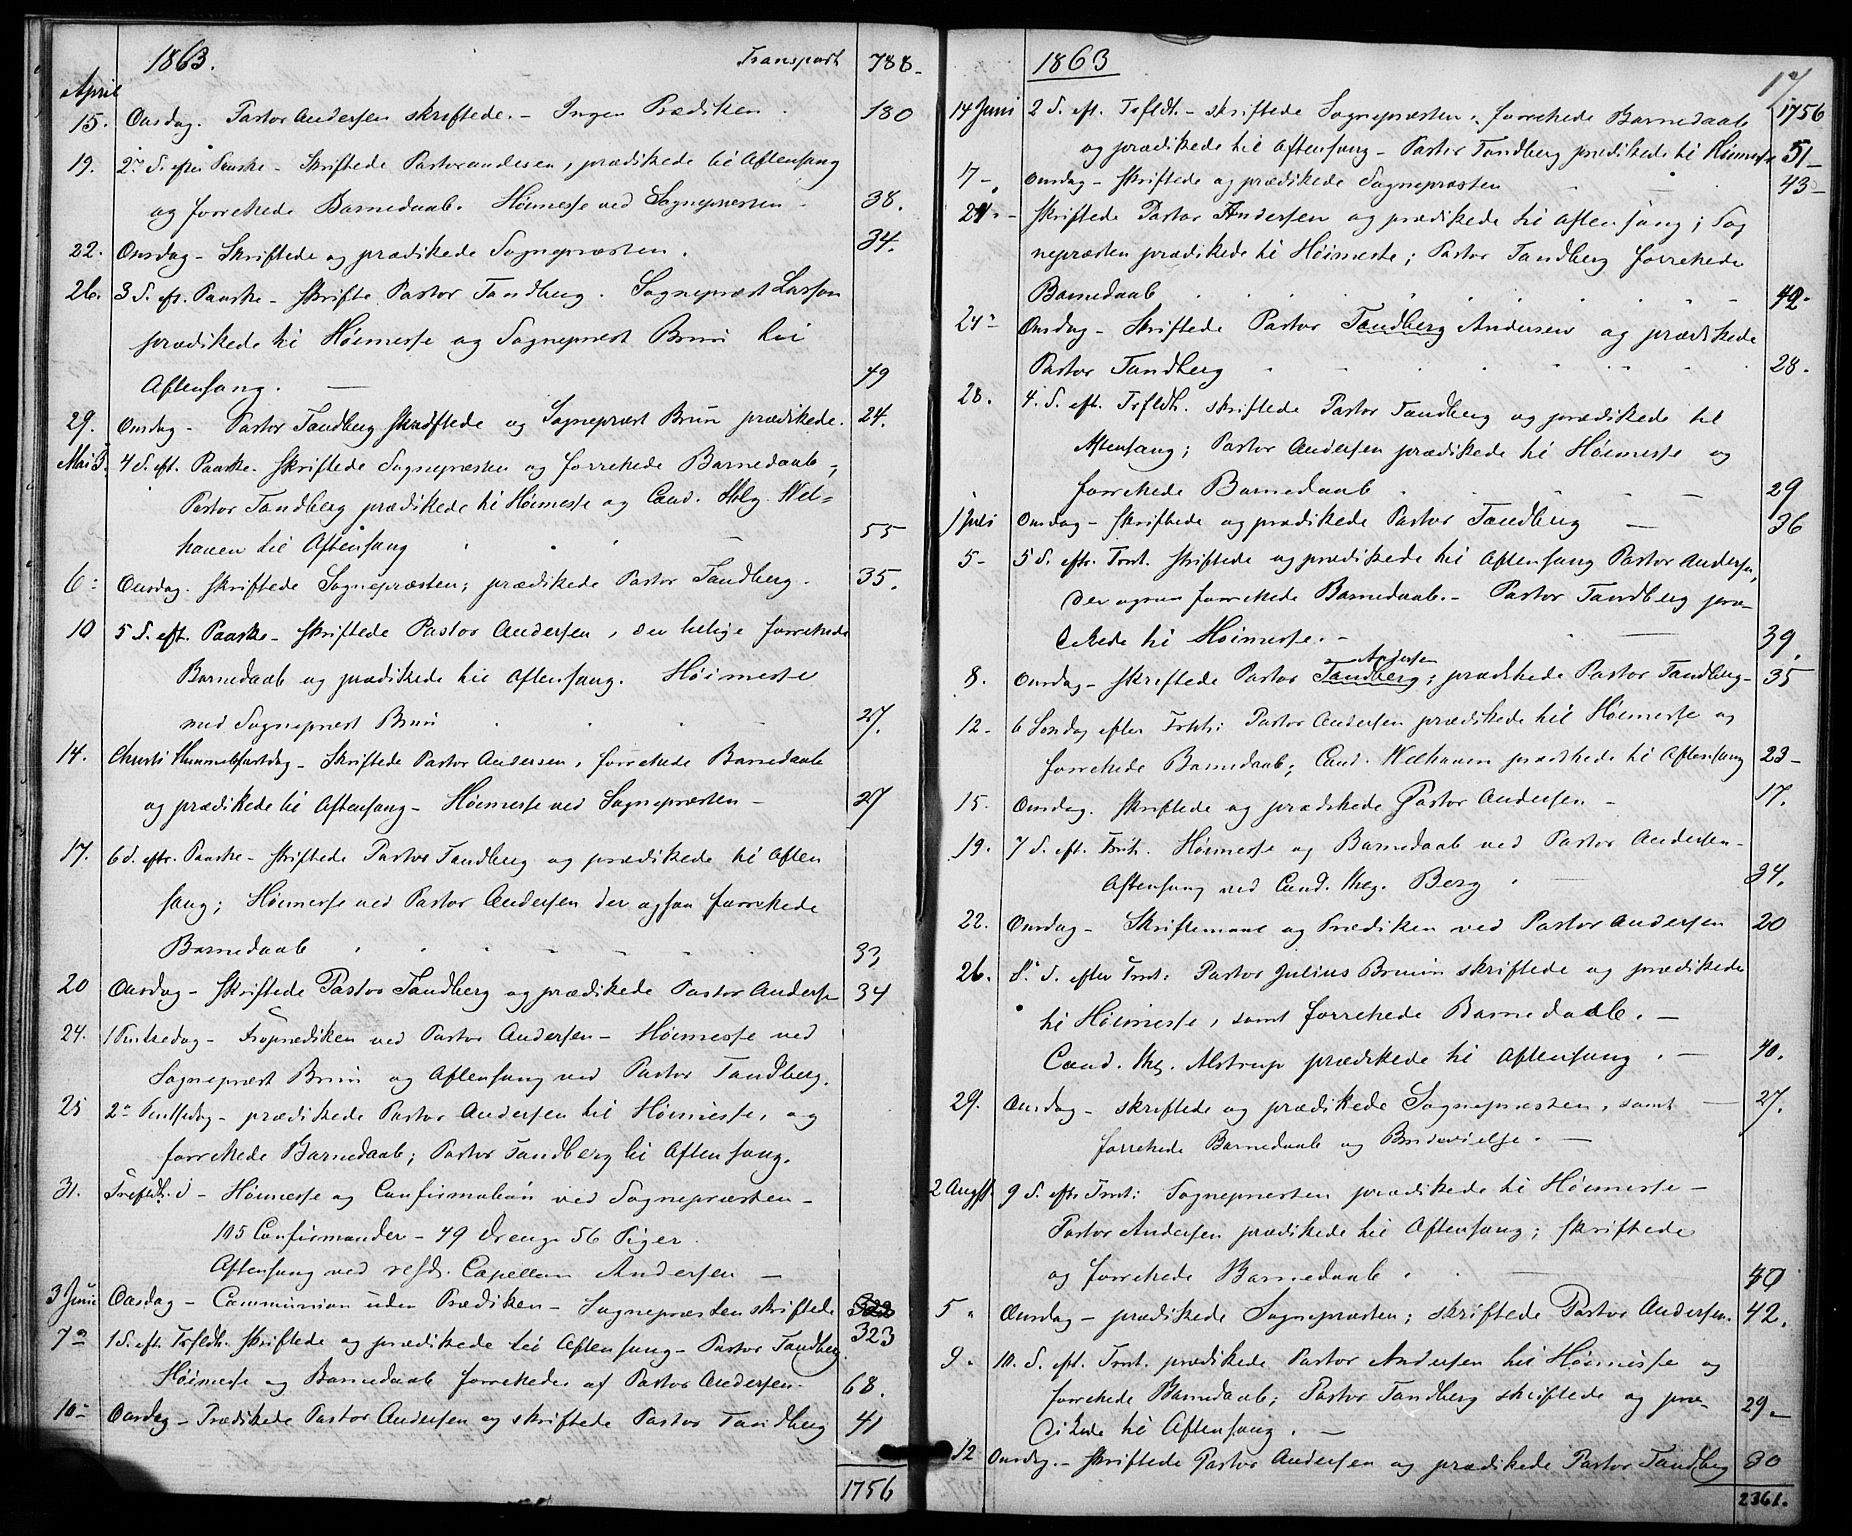 1863. Transport 788.
April
15. Onsdag. Pastor Andersen skriftede. - Ingen Prædiken. 180
19. 2n S. efter Paaske - Skriftede Pastor Andersen, prædikede til Aftensang
og forrettede Barnedaab. Høimesse ved Sognepræsten - 38.
22. Onsdag - Skriftede og prædikede Sognepræsten. 34.
26. 3 S. eft. Paaske - skrifte Pastor Tandberg. Sognepræst Larson
prædikede til Høimesse og Sognepræst Brun til
Aftensang. — 49
29. Onsdag - Pastor Tandberg skriftede og Sognepræst Brun prædikede. 24.
Mai 3. 4 S. eft. Paaske. Skriftede Sognepræsten og forrettede Barnedaab,
Pastor Tandberg prædikede til Høimesse og Cand. theolg. Wel=
haven til Aftensang 55
6: Onsdag. skriftede Sognepræsten; prædikede Pastor Tandberg. 35.
10 5 S. eft. Paaske - skriftede Pastor Andersen, der tillige forrettede
Barnedaab og prædikede til Aftensang. Høimesse
med Sognepræst Brun 27.
14. Christi Himmelfartsdag - Skriftede Pastor Andersen, forrettede Barnedaab
og prædikede til Aftensang - Høimesse ved Sognepræsten - 27
17. 6 S. eftr. Paaske - skriftede Pastor Tandberg og prædikede til Aften
sang; Høimesse ved Pastor Andersen der ogsaa forrettede
Barnedaab 33
20 Onsdag - Skriftede Pastor Tandberg og prædikede Pastor Andersen 34
24. 1 Pintsedag - Froprædiken ved Pastor Andersen - Høimesse ved
Sognepræst Brun og Aftensang ved Pastor Tandberg.
25 2n Pintsedag - prædikede Pastor Andersen til Høimesse, og
forrettede Barnedaab; Pastor Tandberg til Aftensang.
31. Trefldh. S - Høimesse og Confirmation ved Sognepræsten -
105 Confirmander - 49 Drenge 56 Piger.
Aftensang ved resd. Capellan Andersen —
3 Juni Onsdag - Communion uden Prædiken - Sognepræsten skriftede
7n 1 S. eft. Trfldh. Skriftede og prædikede til Aftensang - Pastor Tandberg. 323
Høimesse og Barnedaab forrettedes af Pastor Andersen. 68.
10n Onsdag - Prædikede Pastor Andersen og skriftede Pastor Tandberg 41
1756
1863 17
14 Juni 2 S. eft. Trfldh. - skriftede Sognepræsten, forrettede Barnedaab 1756
og prædikede til Aftensang - Pastor Tandberg prædikede til Høimesse 51-
7-. Onsdag - skriftede og prædikede Sognepræsten 43-
21.- skriftede Pastor Andersen og prædikede til Aftensang; Sog
nepræsten prædikede til Høimesse; Pastor Tandberg forrettede
Barnedaab 42-
24n Onsdag - Skriftede Pastor Tandberg Andersen og prædikede
Pastor Tandberg 28.
28. 4. S. eft. Trfldh. skriftede Pastor Tandberg og prædikede til
Aftensang; Pastor Andersen prædikede til Høimesse og
forrettede Barnedaab 29
1 Juli Onsdag - skriftede og prædikede Pastor Tandberg — 36
5- 5 S. eftr. Trnt. skriftede og prædikede til Aftensang Pastor Andersen,
der ogsaa forrettede Barnedaab. - Pastor Tandberg præ-
dikede til Høimesse. - 39.
Andersen
8. Onsdag - skriftede Pastor Tandberg; prædikede Pastor Tandberg- 35
12- 6 Søndag efter Trnt: Pastor Andersen prædikede til Høimesse og
forrettede Barnedaab; Cand. Welhaven prædikede til Aftensang 23-
15. Onsdag. skriftede og prædikede Pastor Andersen - 17.
19. 7 S. eft. Trnt. Høimesse og Barnedaab ved Pastor Andersen -
Aftensang ved Cand. theg. Berg 34.
22. Onsdag - Skriftemaal og Prædiken ved Pastor Andersen 20
26. 8n S. efter Trnt: Pastor Julius Bruun skriftede og prædikede
til Høimesse, samt forrettede Barnedaab. -
Cand. theg. Alstrup prædikede til Aftensang. - 40.
29. Onsdag - skriftede og prædikede Sognepræsten, samt — 27.
forrettede Barnedaab og Brudevielse. -
2 August 9 S. eftr. Trnt: Sognepræsten prædikede til Høimesse -
Pastor Andersen prædikede til Aftensang; skriftede
og forrettede Barnedaab. 40
5 " Onsdag - prædikede Sognepræsten; skriftede Pastor Andersen. 42.
9. 10. S. eft. Trnt. prædikede Pastor Andersen til Høimesse og
forrettede Barnedaab; Pastor Tandberg skriftede og præ-
dikede til Aftensang. - 29-
12 Onsdag. - Skriftede Pastor Andersen og prædikede Pastor Tandberg 30
2361.